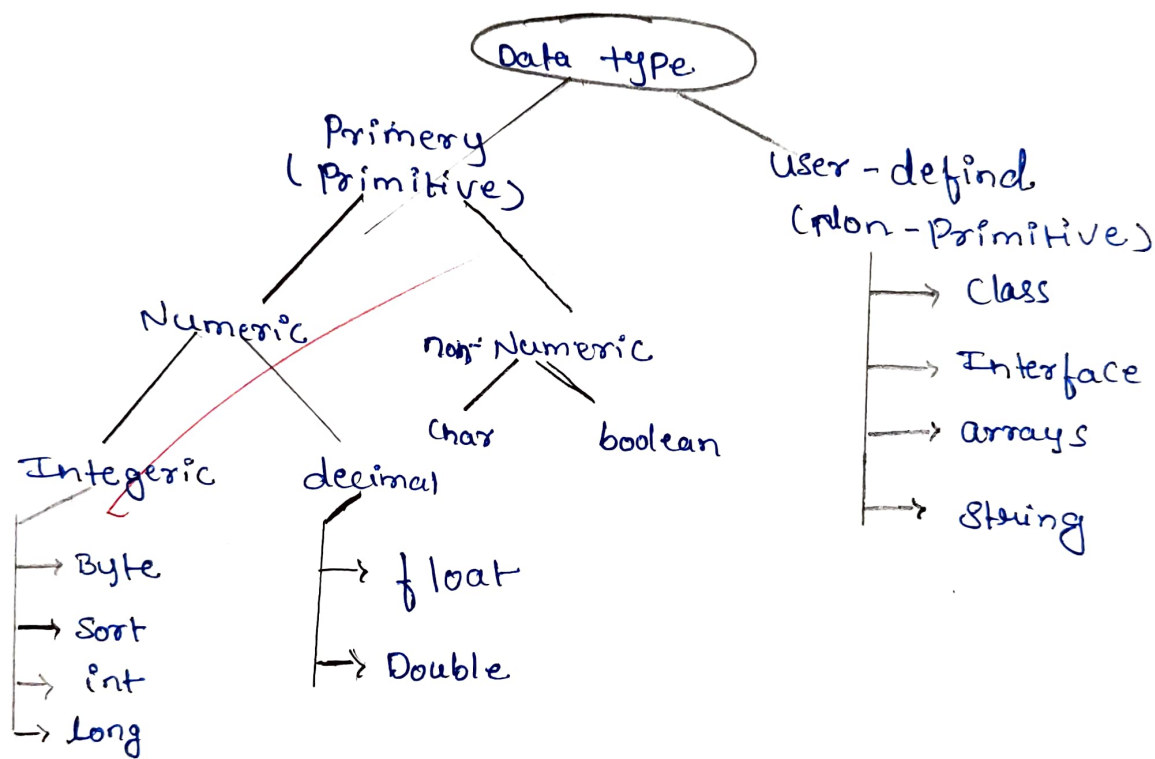 Data type
Primery
(Primitive)
user-defind
(Non-Primitive)
Class
Interface
arrays
String
Numeric
non-Numeric
Char
boolean
Integeric
decimal
Byte
Sort
int
long
float
Double